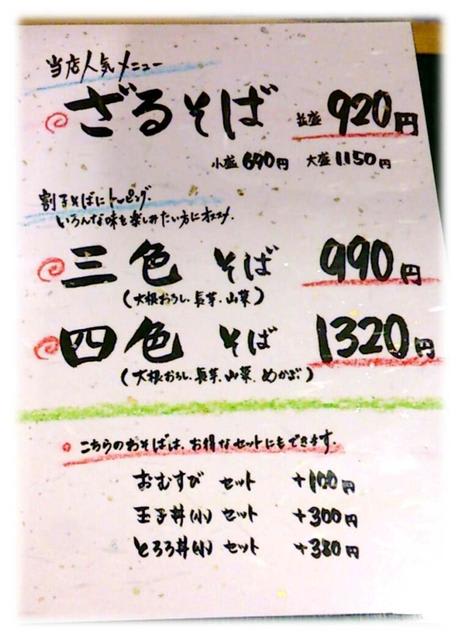 当店人気メニュー
ざるそば 並盛 920円
小盛 690円 大盛 1150円
割子そばにトッピング.
いろんな味を楽しみたい方にオススメ.
三色 そば 990円
(大根おろし.長芋.山菜)
四色 そば 1320円
(大根おろし.長芋.山菜.めかぶ)
こちらのおそばは、お得なセットにもできます.
おむすび セット +100円
玉子丼(小) セット +300円
とろろ丼(小) セット +380円